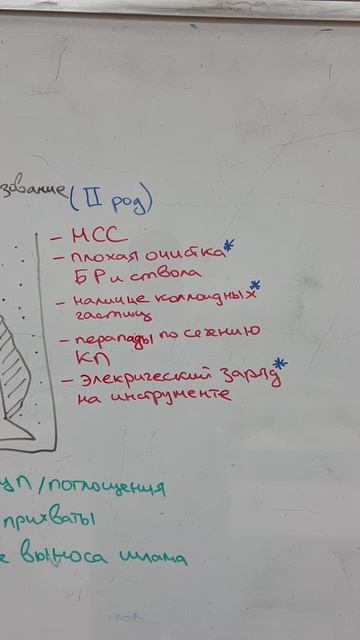 зование (II род)
- МСС
- плохая очистка*
БР и ствола
- наличие коллоидных*
частиц
- перепады по сечению
КП
- элекрический заряд*
на инструменте
УП/поглощения
прихваты
е выноса шлама